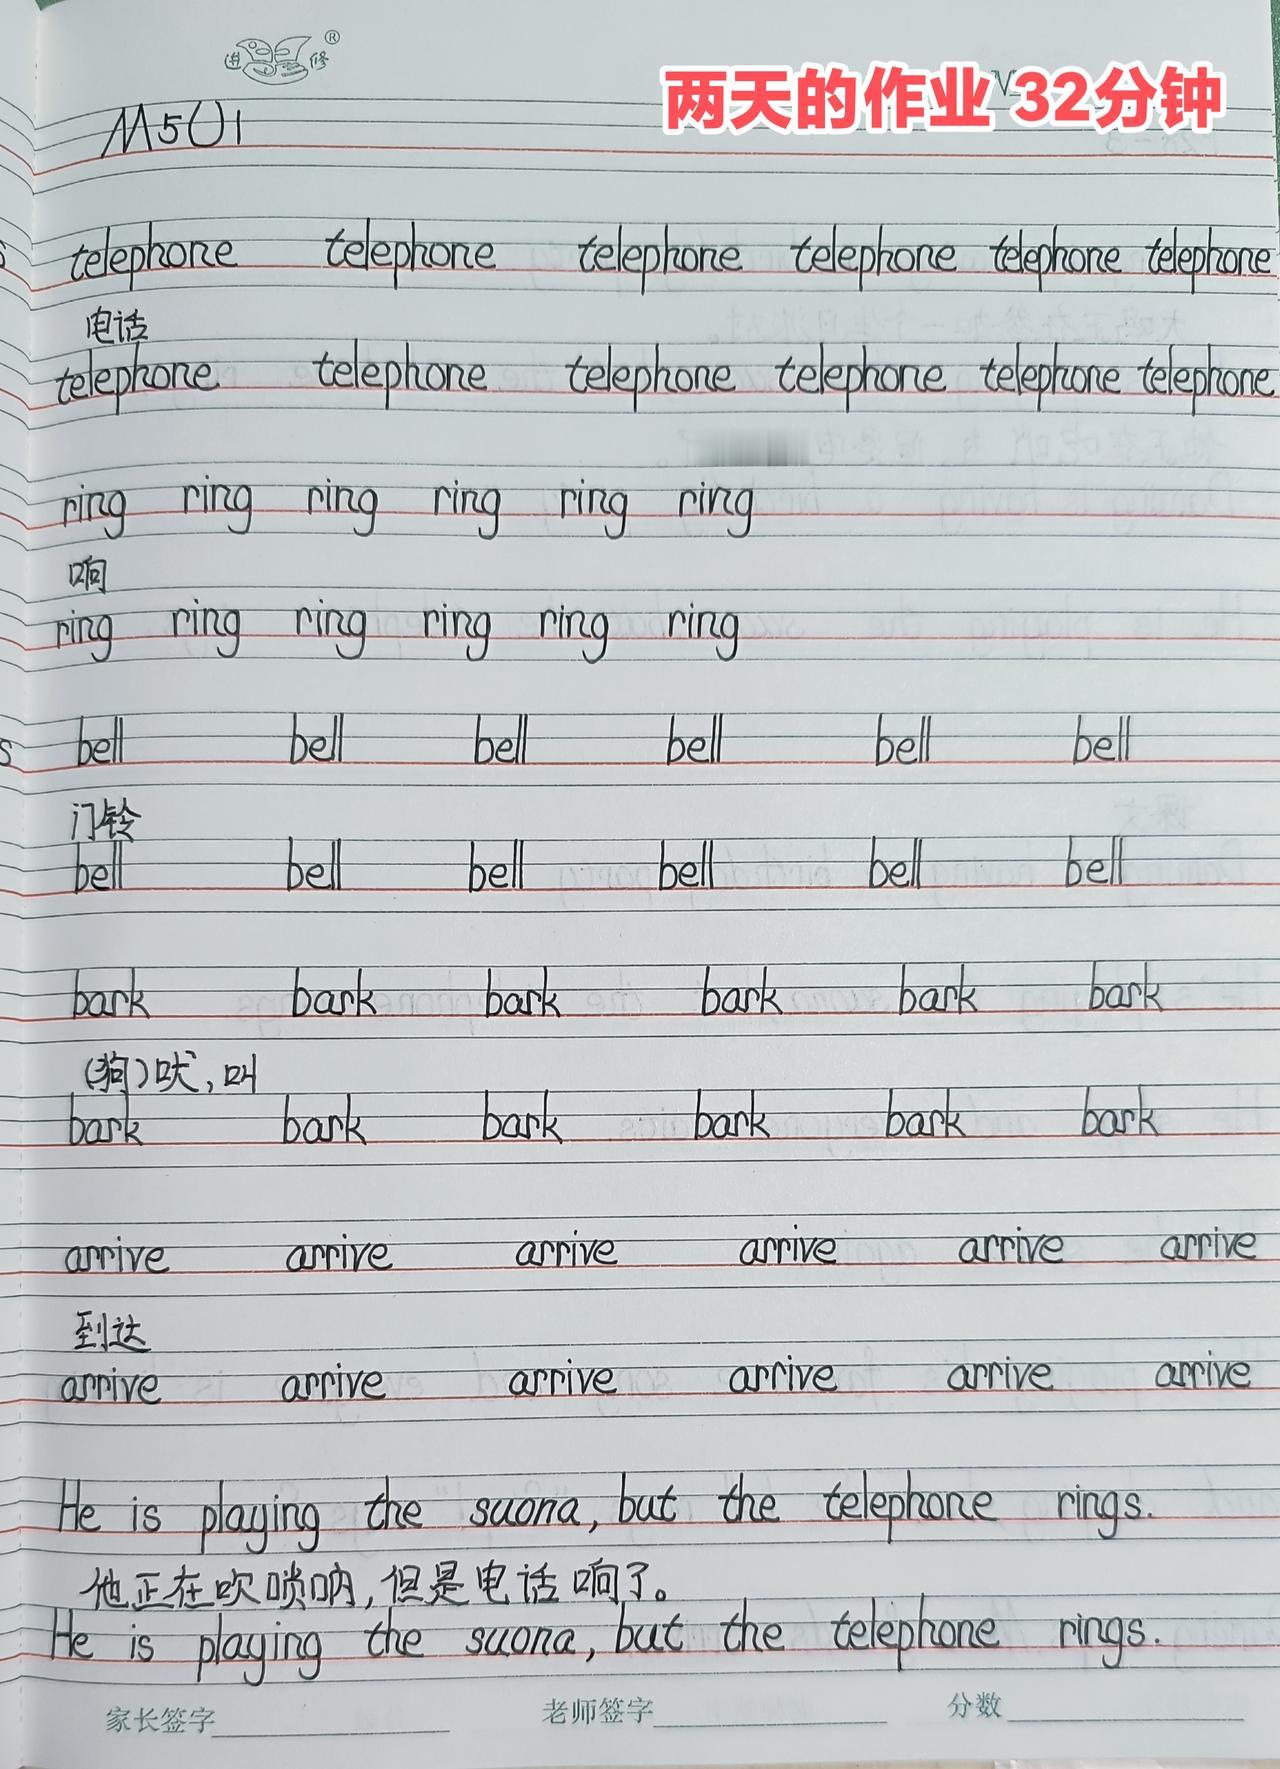 进修®
两天的作业 32分钟
M5U1
telephone telephone telephone telephone telephone telephone
电话
telephone telephone telephone telephone telephone telephone
ring ring ring ring ring ring
响
ring ring ring ring ring ring
bell bell bell bell bell bell
门铃
bell bell bell bell bell bell
bark bark bark bark bark bark
(狗)吠,叫
bark bark bark bark bark bark
arrive arrive arrive arrive arrive arrive
到达
arrive arrive arrive arrive arrive arrive
He is playing the suona, but the telephone rings.
他正在吹唢呐,但是电话响了。
He is playing the suona, but the telephone rings.
家长签字 老师签字 分数